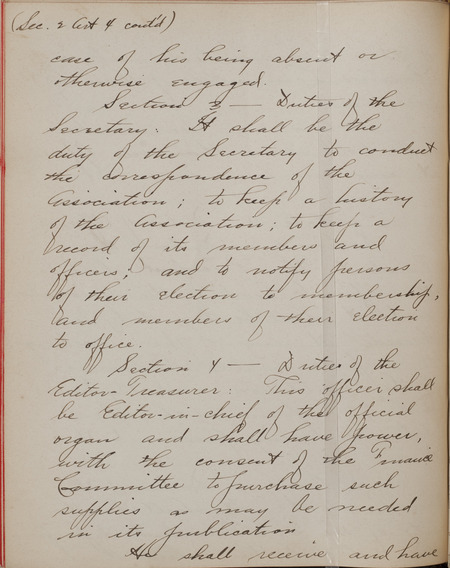 (Sec. 2 Art 4 cont'd)
case of his being absent or
otherwise engaged.
Section 3 — Duties of the
Secretary: It shall be the
duty of the Secretary to conduct
the correspondence of the
Association; to keep a history
of the Association; to keep a
record of its members and
officers; and to notify persons
of their election to membership,
and members of their election
to office.
Section 4 — Duties of the
Editor-Treasurer: This officer shall
be Editor-in-chief of the official
organ and shall have power,
with the consent of the Finance
Committee to purchase such
supplies as may be needed
in its publication
He shall receive and have